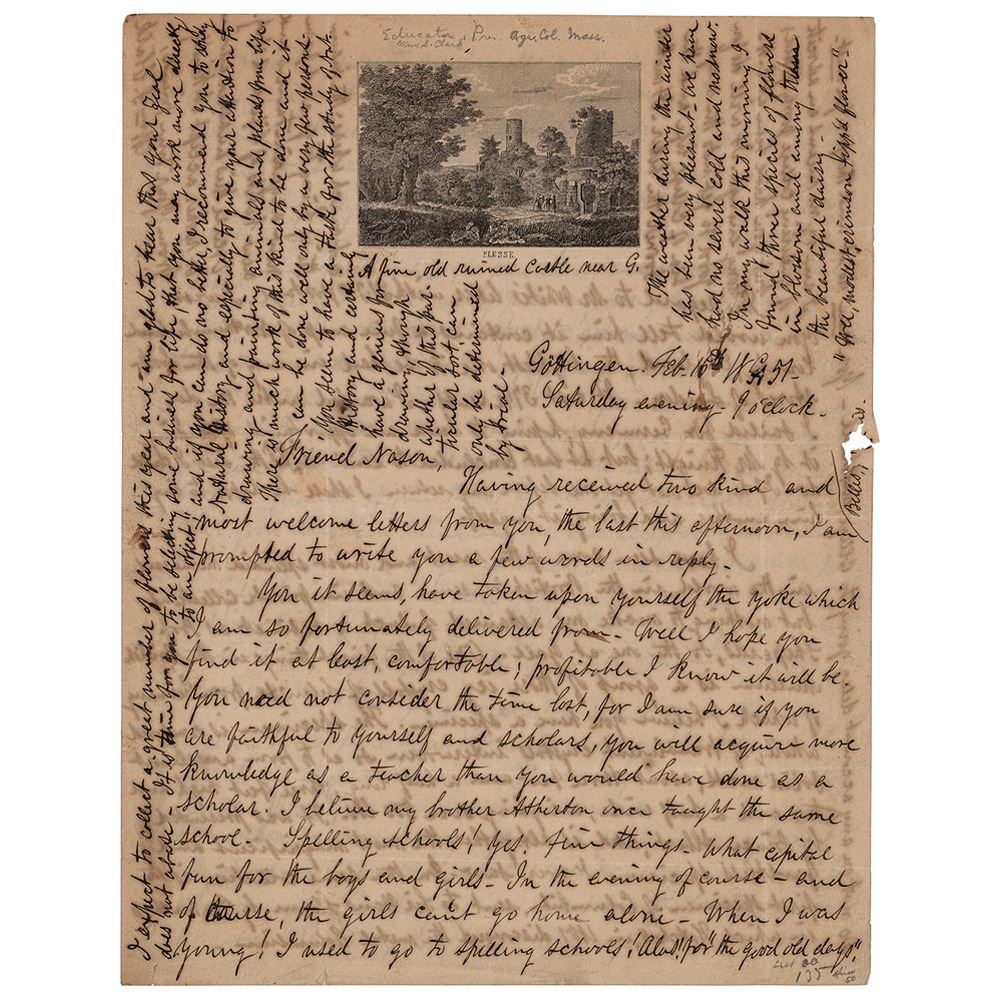 Educator, Pres. Agr. Col. Mass.
Wm. S. Clark
PLESSE.
A fine old ruined castle near G.
Gottingen. Feb. 15th 1851.
Saturday evening - 9 o'clock.
Friend Nason,
Having received two kind and
most welcome letters from you, the last this afternoon, I am
prompted to write you a few words in reply.
You it seems, have taken upon yourself the yoke which
I am so fortunately delivered from. Well I hope you
find it at least, comfortable; profitable I know it will be.
You need not consider the time lost, for I am sure if you
are faithful to yourself and scholars, you will acquire more
knowledge as a teacher than you would have done as a
scholar. I believe my brother Atherton once taught the same
school. Spelling schools! yes. fine things. what capital
fun for the boys and girls - In the evening of course - and
of course, the girls can't go home alone - When I was
young! I used to go to spelling schools! Alas! for "the good old days".
I expect to collect a great number of flowers this year and am glad to hear that your zeal
does not abate - It is time for you to be selecting some business for life, that you may work more directly
to an object! and if you can do no better, I recommend you to study
Natural History and especially to give your attention to
drawing and painting animals and plants from life.
There is much work of this kind to be done and it
can be done well only by a very few persons.
You seem to have a taste for the study of Nat.
History and certainly
have a genius for
drawing though
whether of this par-
ticular sort can
only be determined
by trial -
The weather during the winter
has been very pleasant - we have
had no severe cold and no snow.
In my walk this morning I
found three species of flowers
in blossom and among them
the beautiful daisy -
"Wee, modest, crimson tipp'd flower" -
(Bellis,
135
50